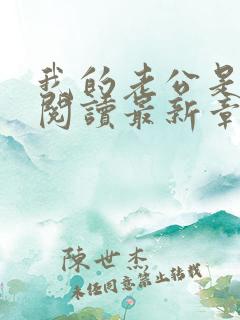 我的老公是
閱讀最新章
陳世杰
未经同意禁止转载